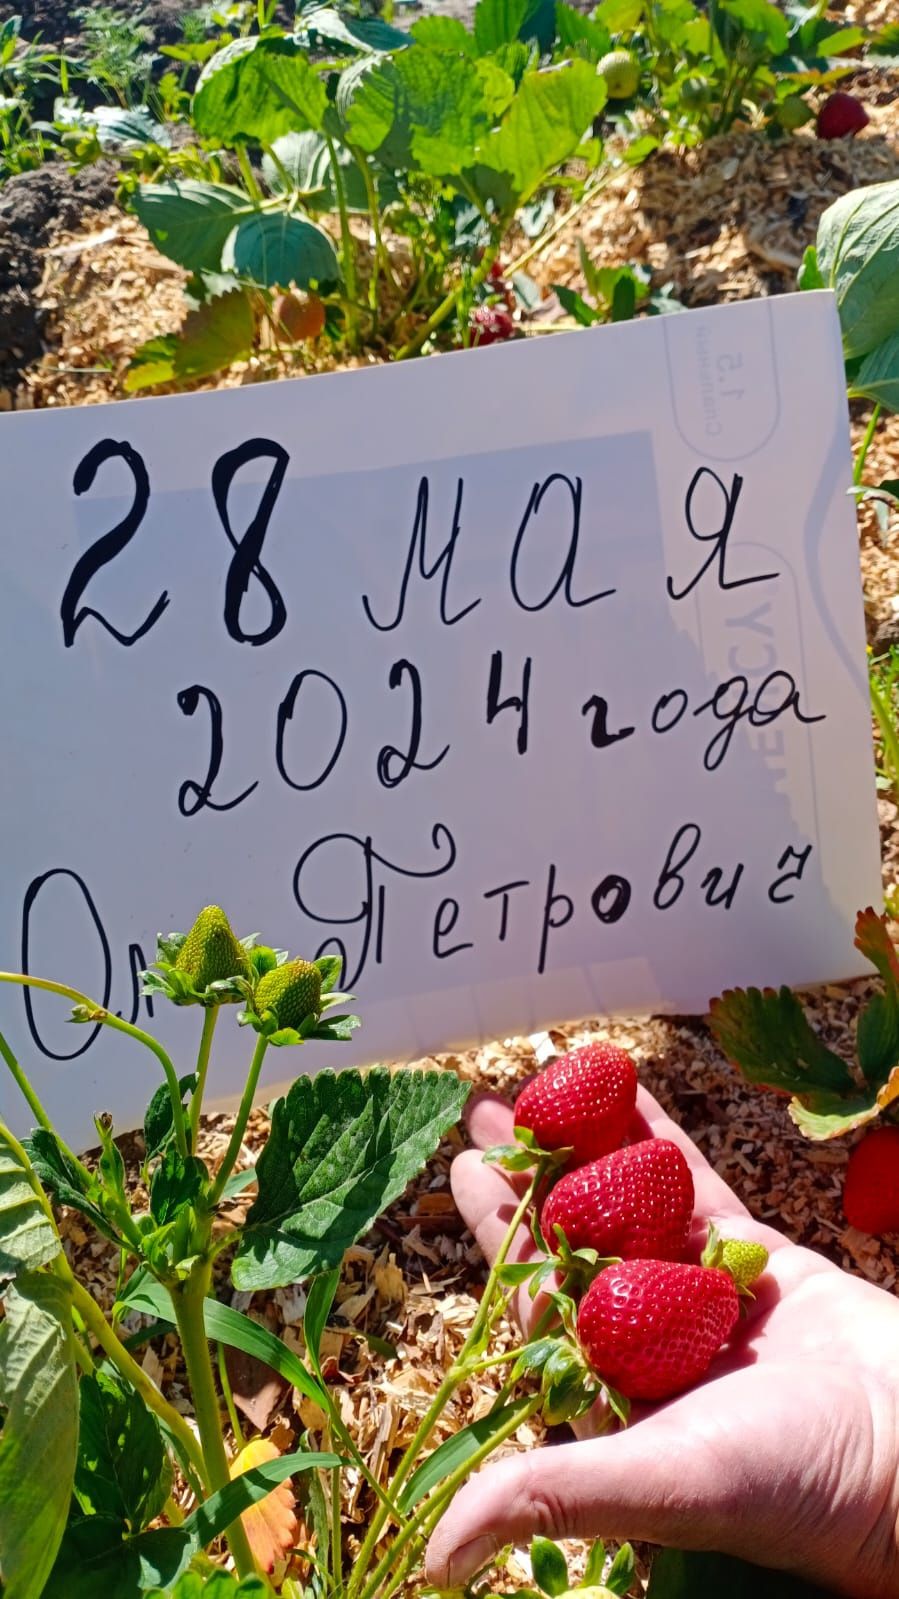 28 мая
2024 года
Петрович